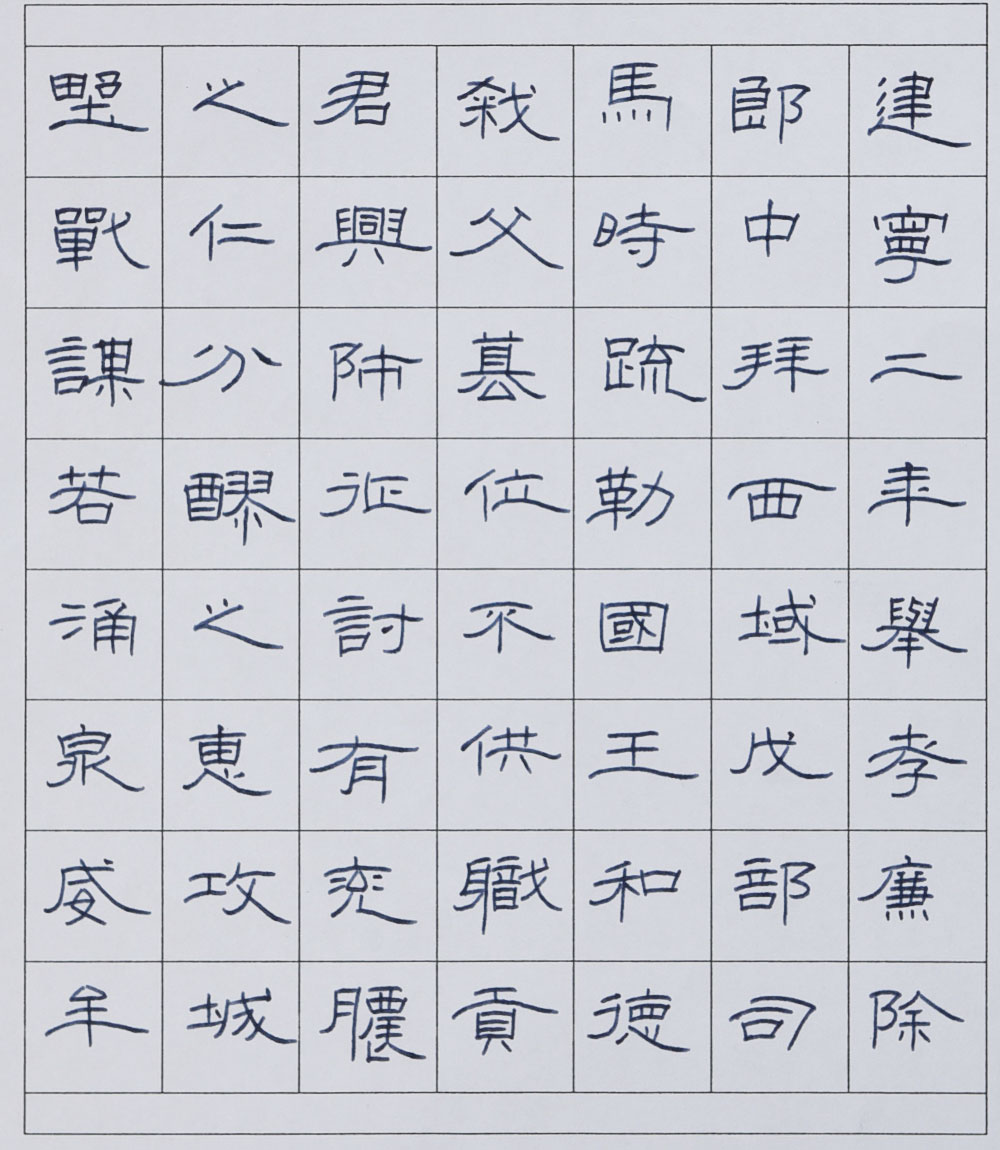 建寧二年舉孝廉除
郎中拜西域戊部司
馬時疏勒國王和德
弒父篡位不供職貢
君興師征討有兗膿
之仁分醪之惠攻城
野戰謀若涌泉威牟